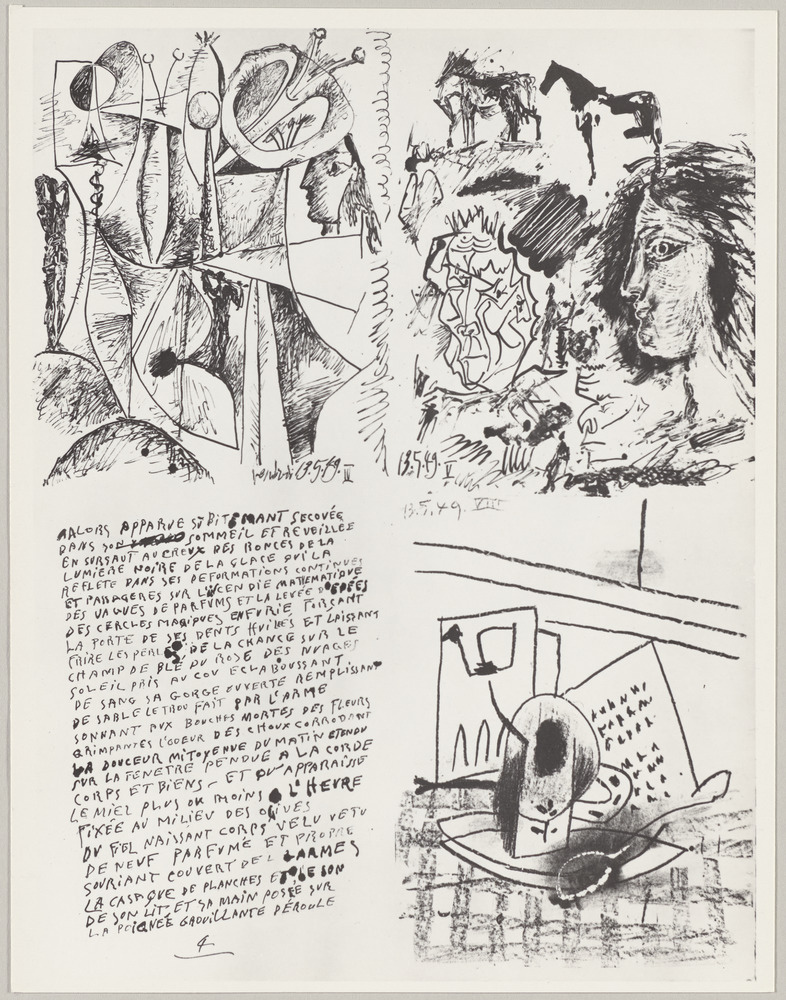 13.5.49. IV
13.5.49. V
AALORS APPARUE SUBITEMANT SECOUÉE
DANS SON SOMMEIL ET REVEILLÉE
EN SURSAUT AU CREUX DES RONCES DE LA
LUMIÈRE NOIRE DE LA GLACE QUI LA
REFLETE DANS SES DEFORMATIONS CONTINUES
ET PASSAGERES SUR L'INCENDIE MATHEMATIQUE
DES VAGUES DE PARFUMS ET LA LEVÉE D'EPÉES
DES CERCLES MAGIQUES EN FURIE FORSANT
LA PORTE DE SES DENTS HUILÉS ET LAISSANT
FRIRE LES PERLES DE LA CHANCE SUR LE
CHAMP DE BLÉ DU ROSE DES NUAGES
SOLEIL PRIS AU COU ECLABOUSSANT
DE SANG SA GORGE OUVERTE REMPLISSANT
DE SABLE LE TROU FAIT PAR L'ARME
SONNANT AUX BOUCHES MORTES DES FLEURS
GRIMPANTES L'ODEUR DES CHOUX CORRODANT
LA DOUCEUR MITOYENNE DU MATIN ETENDU
SUR LA FENETRE PENDUE A LA CORDE
CORPS ET BIENS - ET QU'APPARAISSE
LE MIEL PLUS OU MOINS A L'HEURE
FIXÉE AU MILIEU DES OLIVES
DU FIEL NAISSANT CORPS VELU VETU
DE NEUF PARFUMÉ ET PROPRE
SOURIANT COUVERT DE LARMES
LA CASAQUE DE PLANCHES ET DE SON
DE SON LIT, ET SA MAIN POSÉE SUR
LA POIGNÉE GAOUILLANTE DÉROULE
4
13.5.49. VIII